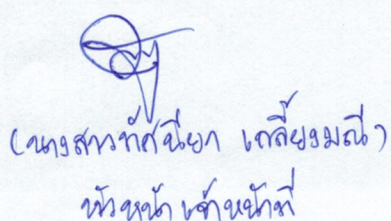 (นางสาวทัศนียา เถลี้ยงมณี)
หัวหน้าเจ้าหน้าที่